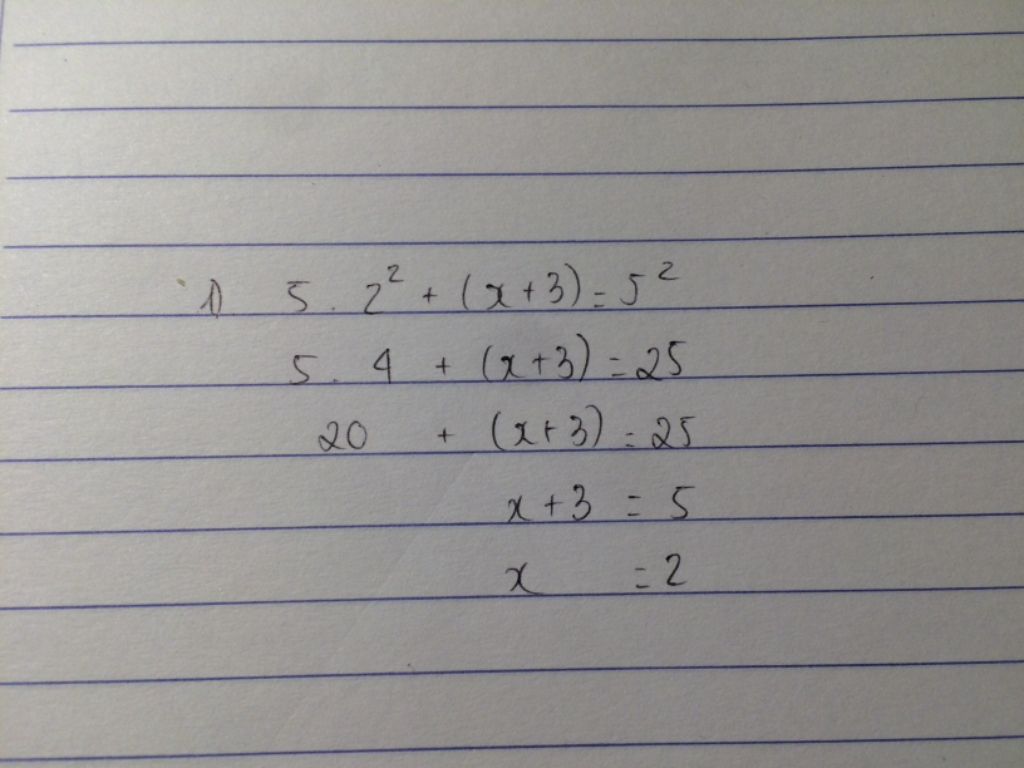 1) 5 . 2² + (x+3) = 5²
5 . 4 + (x+3) = 25
20 + (x+3) = 25
x+3 = 5
x = 2